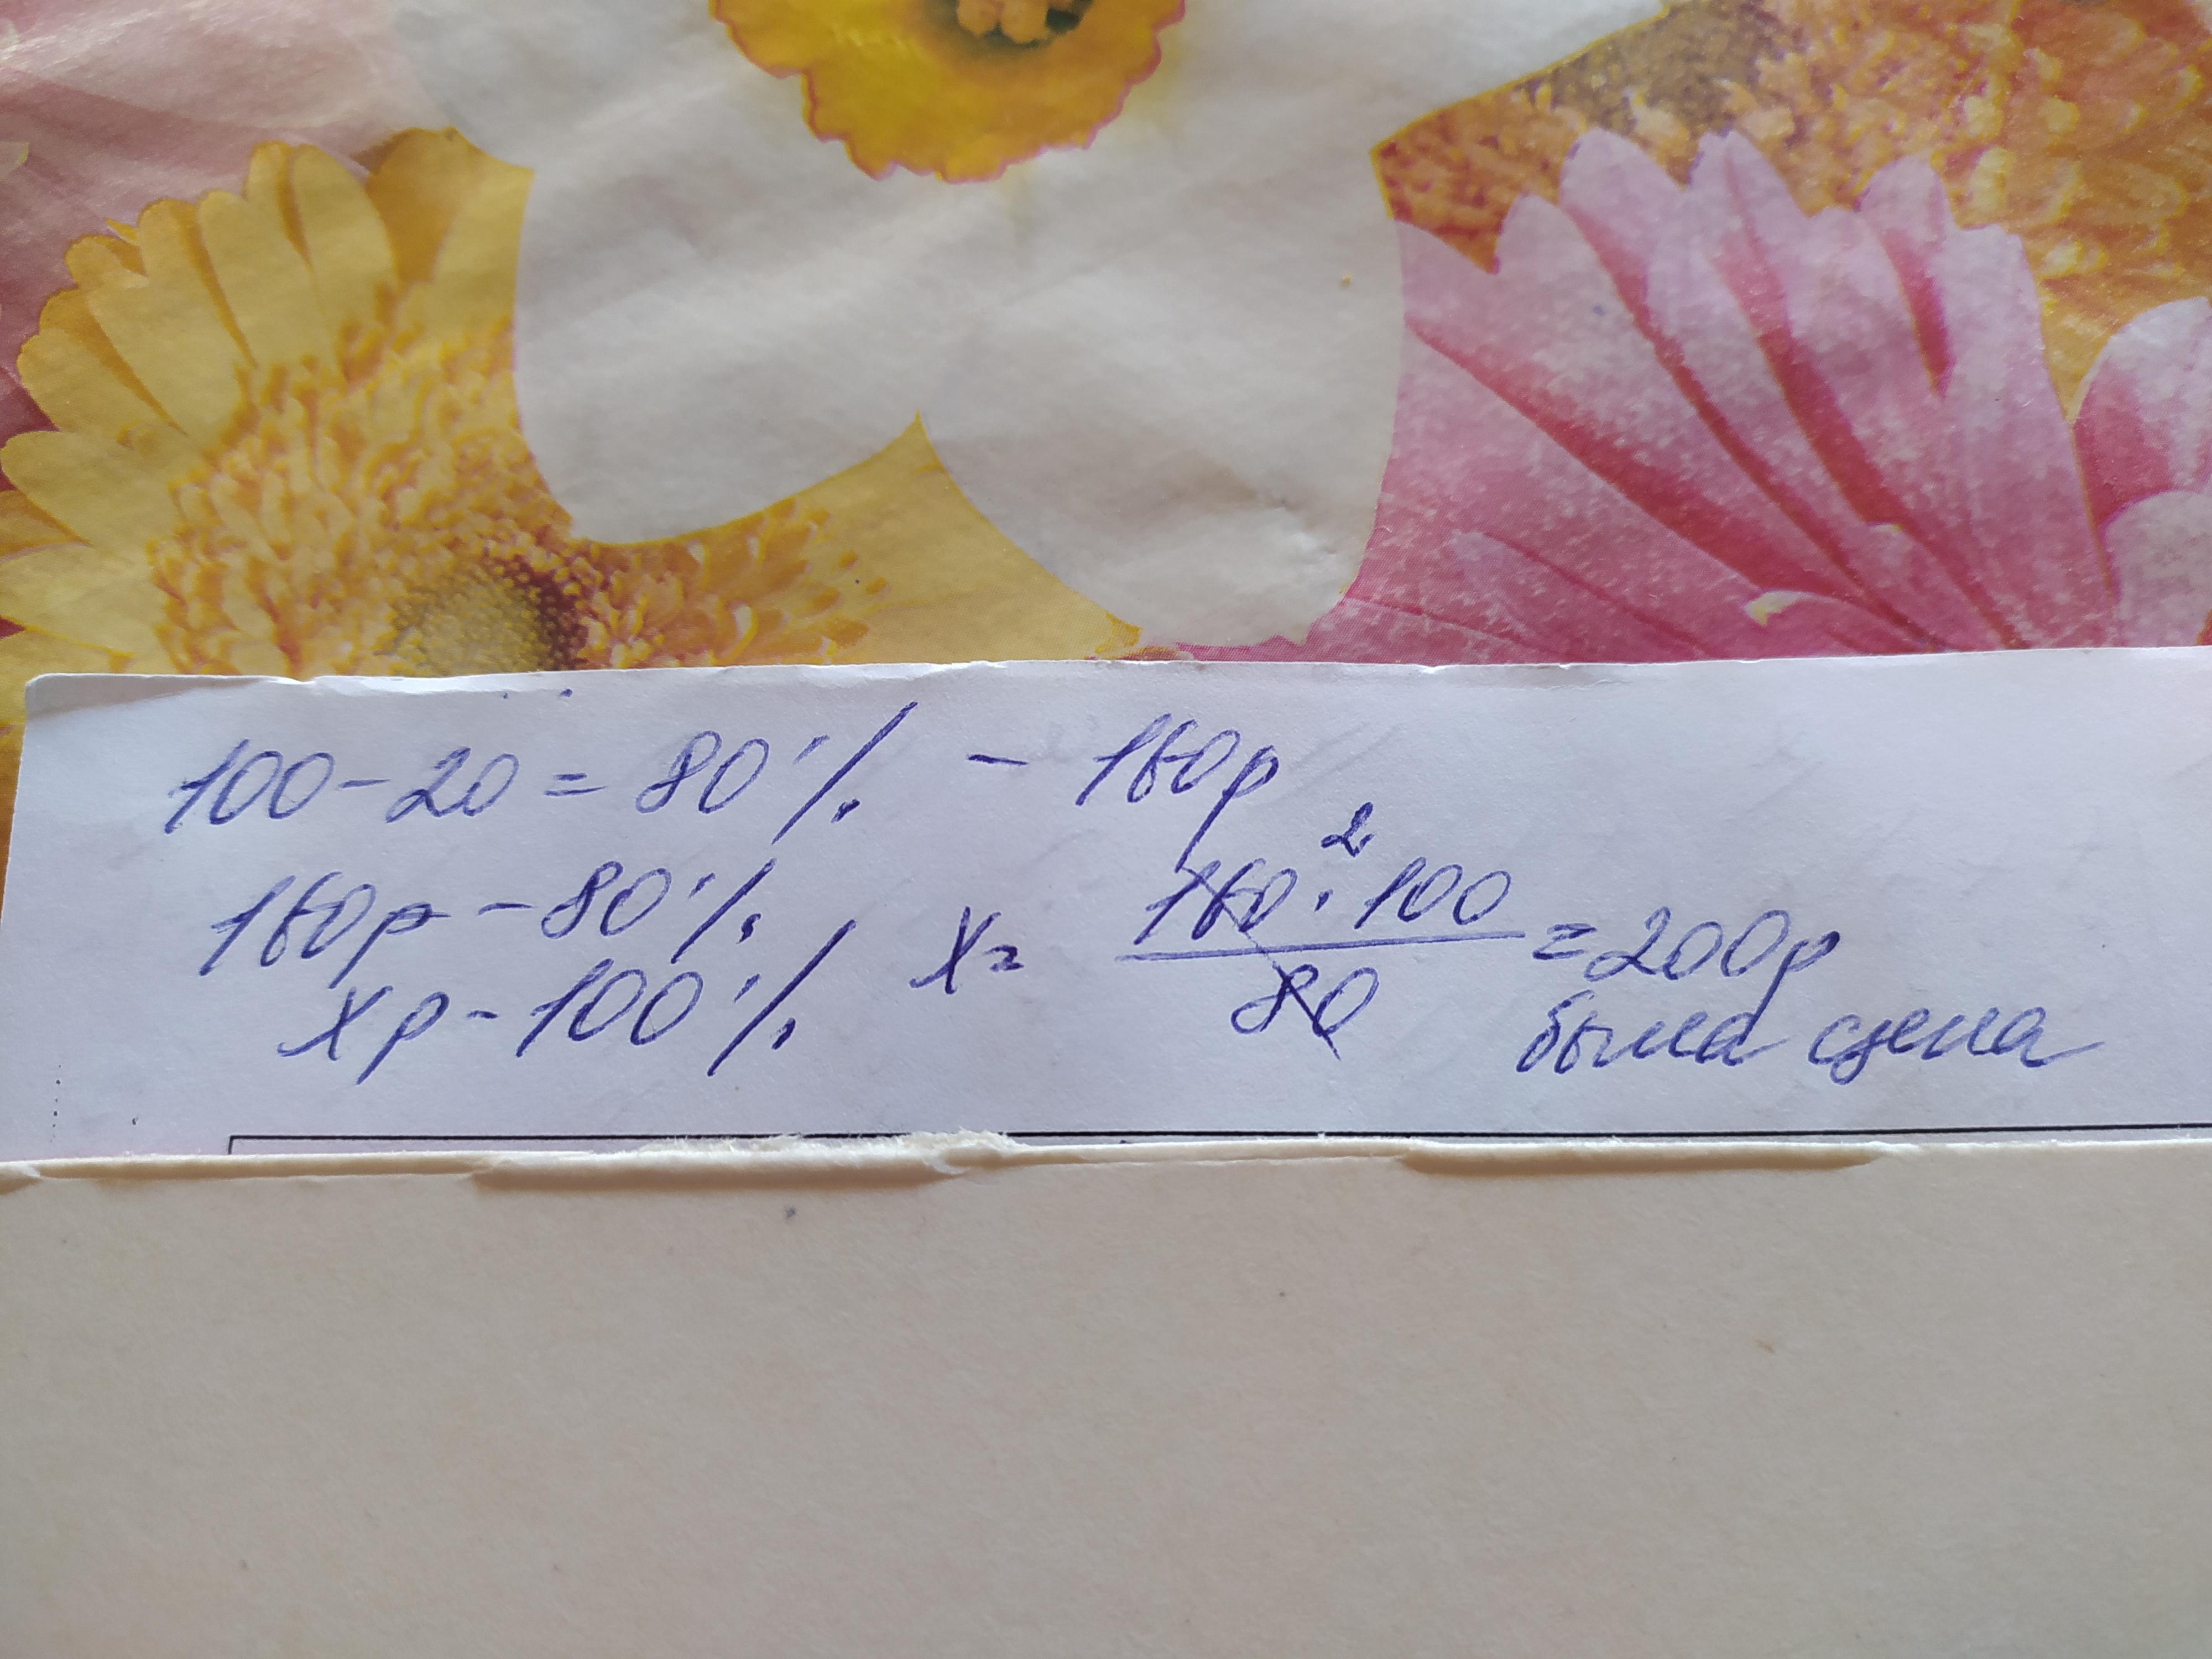 100-20=80% - 160р
160р-80%
xр-100% x= 160·100/80 2 =200р
была цена